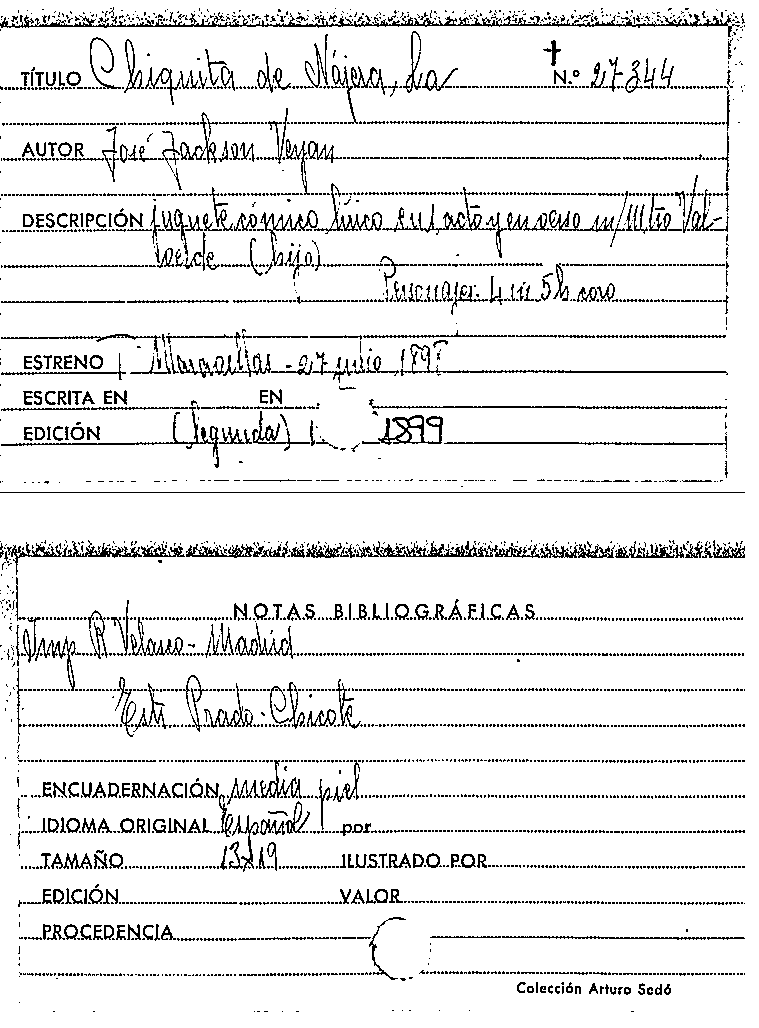 TÍTULO Chiquita de Nájera, La N.º 27344
AUTOR José Jackson Veyan
DESCRIPCIÓN juguete cómico lírico en 1 acto y en verso m/ Mtro Val-
verde (hijo)
Personajes. 4 m 5 h coro
ESTRENO T. Maravillas - 27 julio 189
ESCRITA EN EN
EDICIÓN (Segunda) 1899
NOTAS BIBLIOGRÁFICAS
Imp R Velasco - Madrid
Estr Prado-Chicote
ENCUADERNACIÓN media piel
IDIOMA ORIGINAL Español por
TAMAÑO 13x19 ILUSTRADO POR
EDICIÓN VALOR
PROCEDENCIA
Colección Arturo Sedó